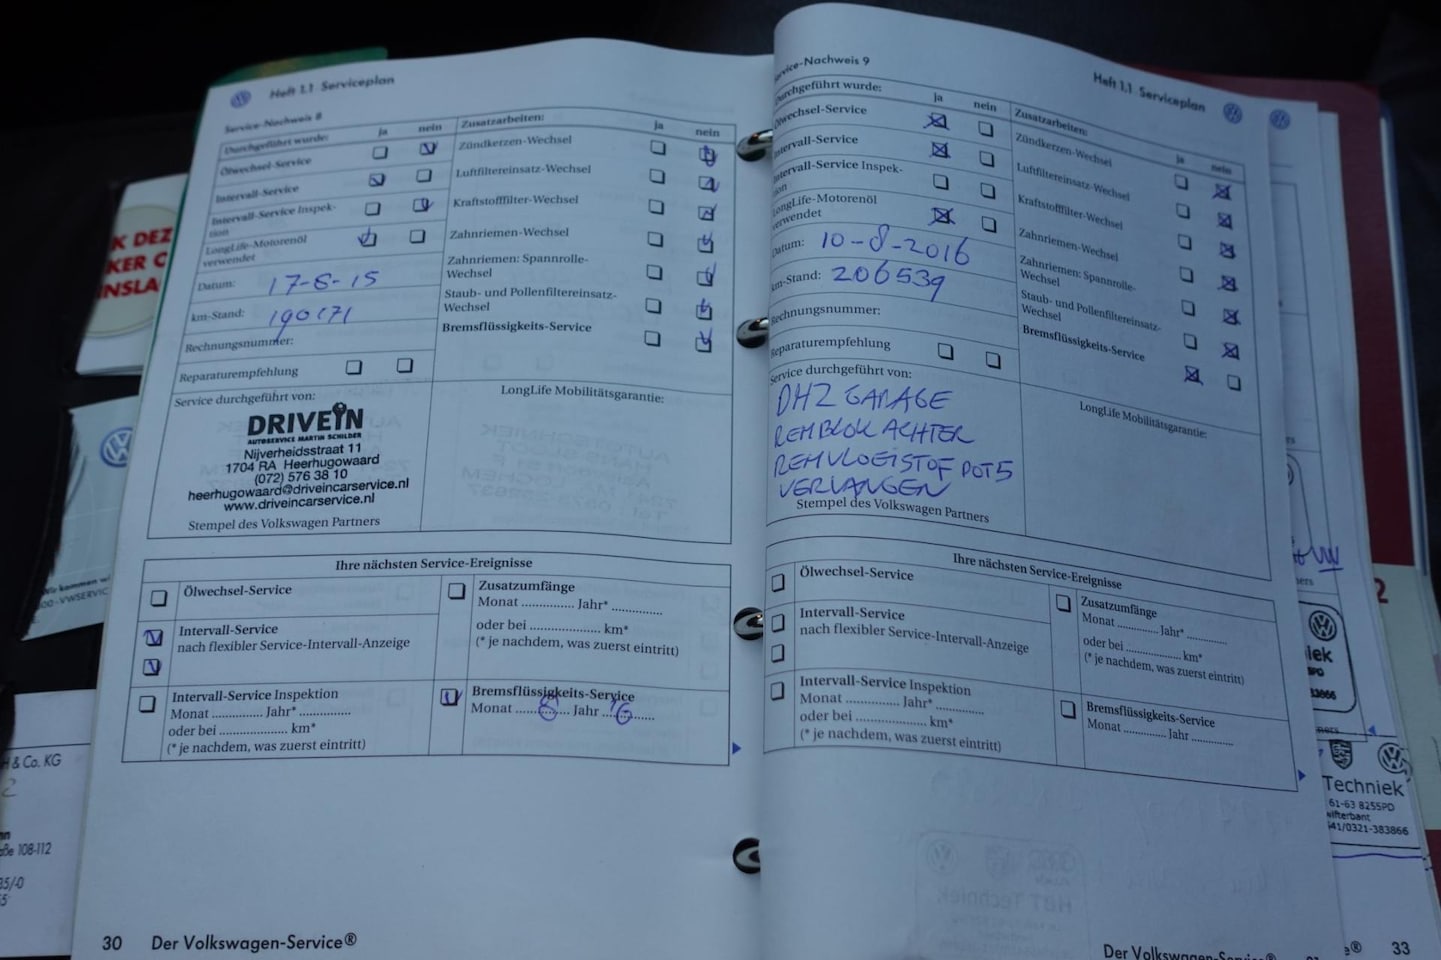 Heft 1.1 Serviceplan
Service-Nachweis 8
Durchgeführt wurde:
ja
nein
Ölwechsel-Service
Intervall-Service
Intervall-Service Inspek-
tion
LongLife-Motorenöl
verwendet
Datum: 17-8-15
km-Stand: 190171
Rechnungsnummer:
Reparaturempfehlung
Zusatzarbeiten:
ja
nein
Zündkerzen-Wechsel
Luftfiltereinsatz-Wechsel
Kraftstofffilter-Wechsel
Zahnriemen-Wechsel
Zahnriemen: Spannrolle-
Wechsel
Staub- und Pollenfiltereinsatz-
Wechsel
Bremsflüssigkeits-Service
Service durchgeführt von:
DRIVEIN
AUTOSERVICE MARTIN SCHILDER
Nijverheidsstraat 11
1704 RA Heerhugowaard
(072) 576 38 10
heerhugowaard@driveincarservice.nl
www.driveincarservice.nl
Stempel des Volkswagen Partners
LongLife Mobilitätsgarantie:
Ihre nächsten Service-Ereignisse
Ölwechsel-Service
Intervall-Service
nach flexibler Service-Intervall-Anzeige
Intervall-Service Inspektion
Monat .............. Jahr* ..............
oder bei ................... km*
(* je nachdem, was zuerst eintritt)
Zusatzumfänge
Monat .............. Jahr* ..............
oder bei ................... km*
(* je nachdem, was zuerst eintritt)
Bremsflüssigkeits-Service
Monat ....8.... Jahr ..16......
30 Der Volkswagen-Service®
Service-Nachweis 9
Heft 1.1 Serviceplan
Durchgeführt wurde:
ja
nein
Ölwechsel-Service
Intervall-Service
Intervall-Service Inspek-
tion
LongLife-Motorenöl
verwendet
Datum: 10-8-2016
km-Stand: 206539
Rechnungsnummer:
Reparaturempfehlung
Zusatzarbeiten:
ja
nein
Zündkerzen-Wechsel
Luftfiltereinsatz-Wechsel
Kraftstofffilter-Wechsel
Zahnriemen-Wechsel
Zahnriemen: Spannrolle-
Wechsel
Staub- und Pollenfiltereinsatz-
Wechsel
Bremsflüssigkeits-Service
Service durchgeführt von:
DHZ GARAGE
REMBLOK ACHTER
REMVLOEISTOF DOT5
VERVANGEN
Stempel des Volkswagen Partners
LongLife Mobilitätsgarantie:
Ihre nächsten Service-Ereignisse
Ölwechsel-Service
Intervall-Service
nach flexibler Service-Intervall-Anzeige
Intervall-Service Inspektion
Monat .............. Jahr* ..............
oder bei ................... km*
(* je nachdem, was zuerst eintritt)
Zusatzumfänge
Monat .............. Jahr* ..............
oder bei ................... km*
(* je nachdem, was zuerst eintritt)
Bremsflüssigkeits-Service
Monat .............. Jahr ..............
Der Volkswagen-Service®
33
VW
Techniek
61-63 8255PD
41/0321-383866
K DEZ
KER C
INSLA
Wir kommen
00-VWSERVIC
H & Co. KG
108-112